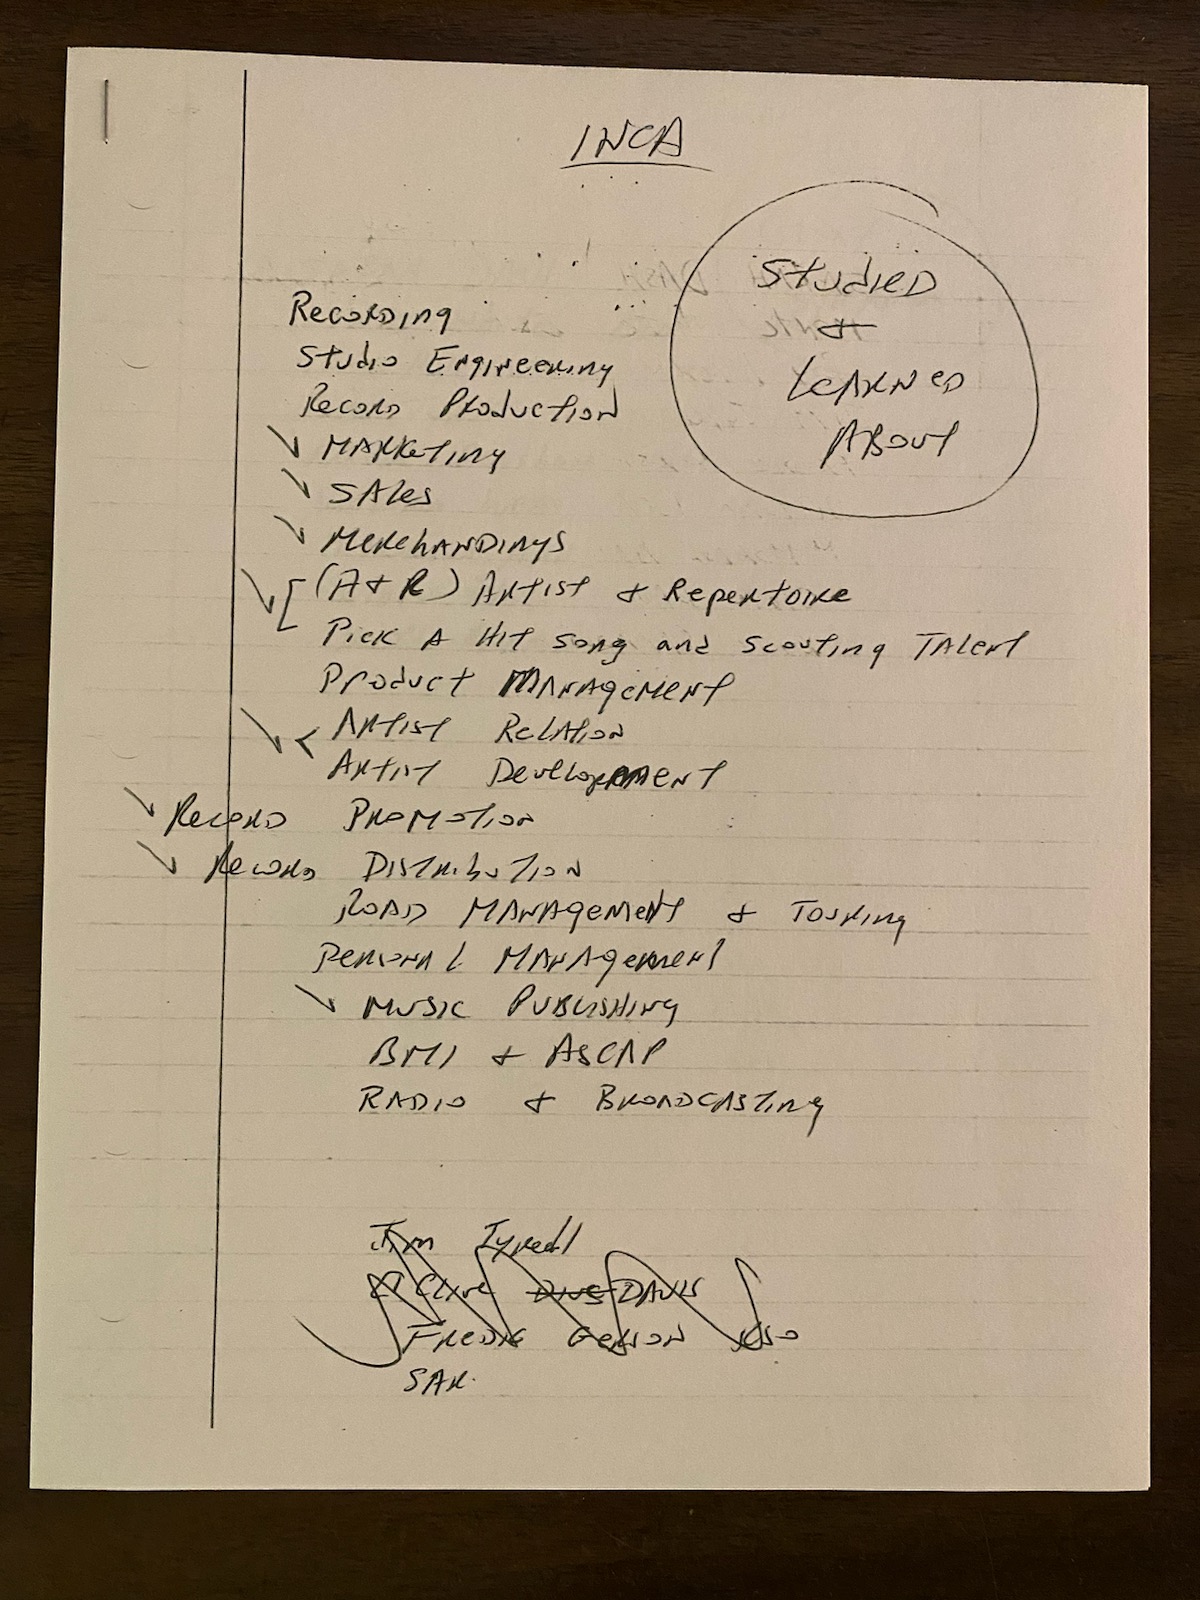 INCA
Studied
&
Learned
About
Recording
Studio Engineering
Record Production
Marketing
Sales
Merchandings
(A & R) Artist & Repertoire
Pick A Hit Song and Scouting Talent
Product Management
Artist Relation
Artist Development
Record Promotion
Record Distribution
Road Management & Touring
Personal Management
Music Publishing
BMI & ASCAP
Radio & Broadcasting
Jim Tyrell
Clive Davis
Gershon
SAR